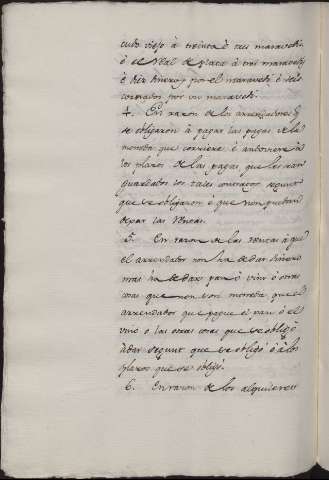 cudo viejo à treinta è tres maravedis
ò el Real de plata à tres maravedis
è diez dineros por el maravedi è seis
cornados por un maravedi.
4. En razon de los arrendadores q̃
se obligaron à pagar las pagas de la
moneda que corriere è andoviere à
los plazos de las pagas, que les sean
guardados los tales contractos segunt
que se obligaron è que non puedan
dexar las rentas.
5. En razon de las rentas à que
el arrendador non ha de dar dinero
mas ha de dar pan ò vino ò otras
cosas que non son moneda que el
arrendador que pague el pan ò el
vino ò las otras cosas que se obligò
à dar segunt que se obligò è à los
plazos que se obligò.
6. En razon de los alquileres